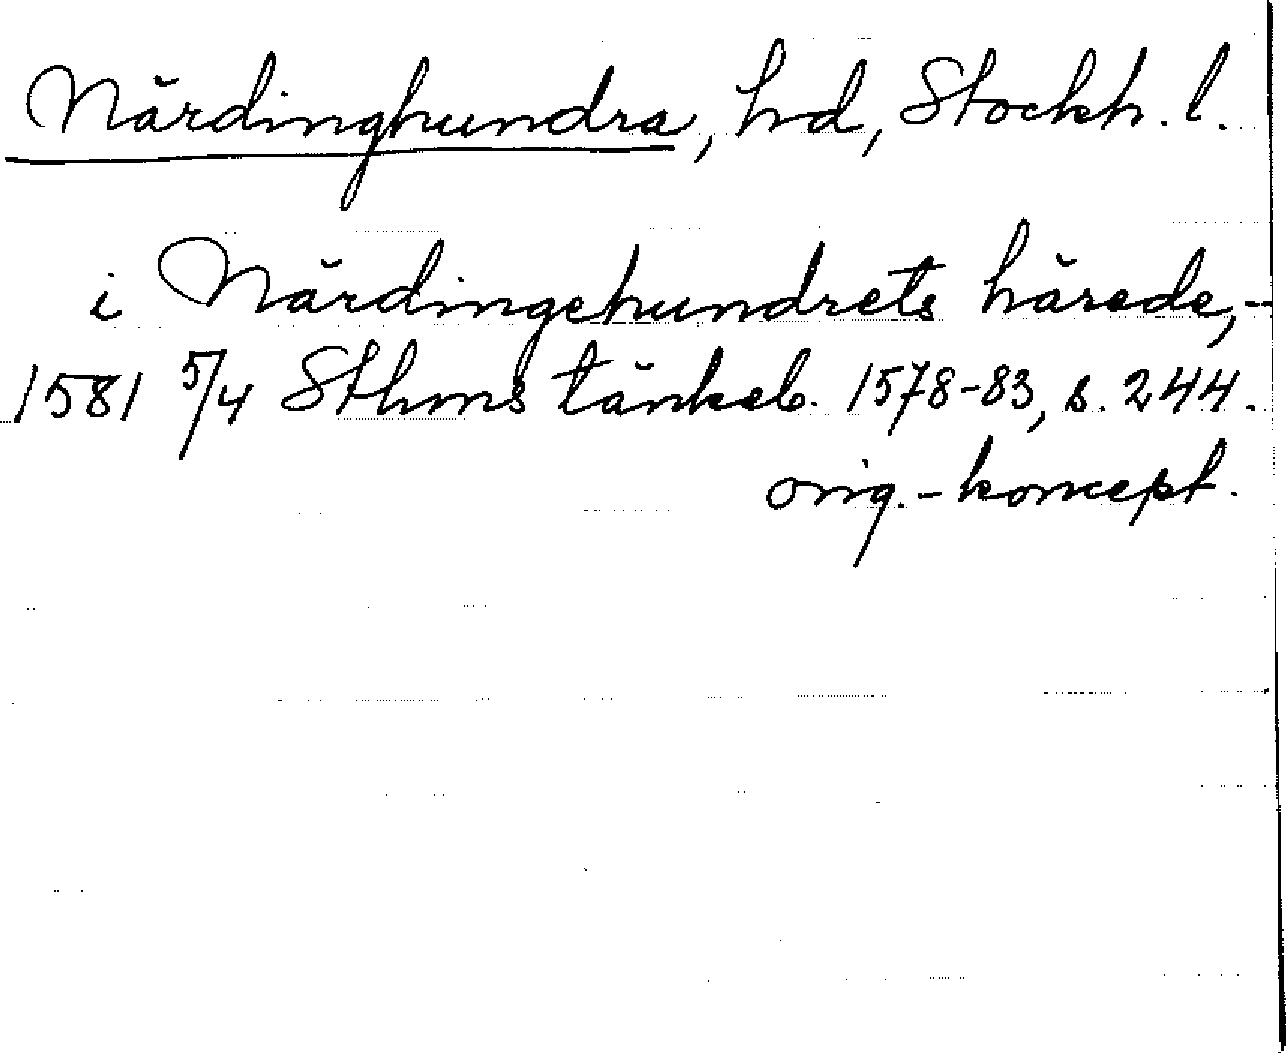 Närdinghundra, hd, Stockh. l.
i Närdingehundrets härede,-
1581 5/4 Sthms tänkeb. 1578-83, s. 244.
orig.-koncept.